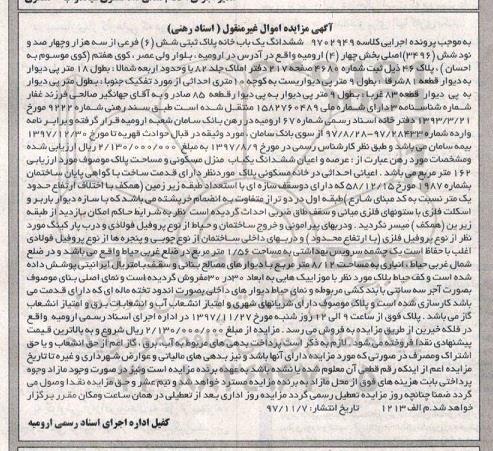 آگهی مزایده اموال غیرمنقول ( اسناد رهنی )
به موجب پرونده اجرایی کلاسه ۹۷۰۲۹۴۹ ششدانگ یک باب خانه پلاک ثبتی شش (۶) فرعی از سه هزار وچهار صد و
نود شش (۳۴۹۶) اصلی بخش چهار (۴) ارومیه واقع در آدرس در ارومیه ، بلوار ولی عصر ، کوی هفتم (کوی موسوم به
احسان ) ، پلاک ۴۶ ذیل ثبت شماره ۴۶۸۰ صفحه ۲۱۷ دفتر املاک جلد ۸۲ با حدود اربعه شمالا : بطول ۱۸ متر پی دیوار
به دیوار قطعه ۸۱ شرقا : بطول ۹ متر پی دیواریست به کوچه ۱۰ متری احداثی از مورد تفکیک جنوبا : بطول متر پی دیوار
به پی دیوار قطعه ۸۳ غربا : بطول ۹ متر پی دیوار به پی دیوار قطعه ۸۵ صادر وبه آقای جهانگیر صالحی فرزند غفار
شماره شناسنامه ۳ دارای شماره ملی ۱۵۸۲۷۶۰۴۸۹ منتقل شده است طبق سند رهنی شماره ۹۲۲۲ مورخ
۱۳۹۳/۳/۲۱ دفتر خانه اسناد رسمی شماره ۶۷ ارومیه در رهن بانک سامان شعبه ارومیه قرار گرفته وبرابر نامه
وارده شماره ۲۸۴۳۳-۹۷/۸/۲۸ از سوی بانک سامان ، مورد وثیقه در قبال حوادث قهریه تا مورخ ۱۳۹۷/۱۲/۳۰
بیمه سامان می باشد و طبق نظر کارشناس رسمی در مورخ ۱۳۹۷/۸/۹ به مبلغ ۲/۱۳۰/۰۰۰/۰۰۰ ریال ارزیابی شده
ومشخصات مورد رهن عبارت از : عرصه و اعیان ششدانگ یکباب منزل مسکونی و مساحت پلاک موصوف مورد ارزیابی
۱۶۲ متر مربع می باشد . اعیانی احداثی در خانه مسکونی پلاک موردنظر دارای قدمت ساخت با گواهی پایان ساختمان
بشماره ۱۹۸۷ مورخ ۵۸/۱۲/۱۵ که دارای دوسقف سازه ای با استعداد : طبقه زیر زمین (همکف با اختلاف ارتفاع حدود
یک متر نسبت به کد مبنای شارع) طبقه اول در دو تراز متفاوت به انضمام خرپشته می باشد که با سازه دیوار باربر و
اسکلت فلزی با ستونهای فلزی میانی و سقف طاق ضربی احداث گردیده است نظر به شرایط حاکم امکان بازدید از طبقه
زیرین (همکف) میسر نگردید . ودربهای پیرامونی و خروج ساختمان و حیاط از نوع پروفیل فولادی و درب پارکینگ مورد
نظر از نوع پروفیل فلزی (با ارتفاع محدود ) و دربهای داخلی ساختمان از نوع چوبی و پنجره ها از نوع پروفیل فولادی
اغلب با حفاظ است یک چشمه سرویس بهداشتی به مساحت ۱/۵۶ متر مربع در ضلع غربی حیاط واقع می باشد و در ضلع
شمال غربی حیاط ، انباری به مساحت ۸/۱۲ متر مربع با دیوار های مصالح بنائی و سقف با متریال ایرانیتی پوشش داده
شده است و کف حیاط پلاک مورد نظر با موزاییک هایی به ابعاد ۳۰در ۳۰ مفروش گردیده است و نمای اصلی بنای موصوف
بصورت آجر سه سانتی با بند کشی مربوطه و نمای حیاط دیوار های داخلی بصورت اندود تخته ماله ای که دارای قدمت می
باشد کارسازی شده است و پلاک موصوف دارای شریانهای شهری و امتیاز انشعاب آب و انشعابات برق و امتیاز انشعاب
گاز می باشد . پلاک فوق از ساعت ۹ الی ۱۲ روز شنبه مورخ ۱۳۹۷/۱۱/۲۷ در اداره اجرای اسناد رسمی ارومیه واقع
در فلکه خیرین از طریق مزایده به فروش می رسد . مزایده از مبلغ ۲/۱۳۰/۰۰۰/۰۰۰ ریال شروع و به بالاترین قیمت
پیشنهادی نقدا فروخته می شود . لازم به ذکر است پرداخت بدهی های مربوطه به آب ، برق ، گاز اعم از حق انشعاب و یا حق
اشتراک ومصرف در صورتی که مورد مزایده دارای آنها باشد و نیز بدهی های مالیاتی و عوارض شهرداری و غیره تا تاریخ
مزایده اعم از اینکه رقم قطعی آن معلوم شده یا نشده باشد به عهده برنده مزایده است ونیز در صورت وجود مازاد وجوه
پرداختی بابت هزینه های فوق از محل مازاد به برنده مزایده مسترد خواهد شد و نیم عشر و حق مزایده نقدا وصول می
گردد ضمنا چنانچه روز مزایده تعطیل رسمی گردد مزایده روز اداری بعد از تعطیلی در همان ساعت ومکان مقرر برگزار
خواهد شد.م الف ۱۲۱۳ تاریخ انتشار: ۹۷/۱۱/۷
کفیل اداره اجرای اسناد رسمی ارومیه